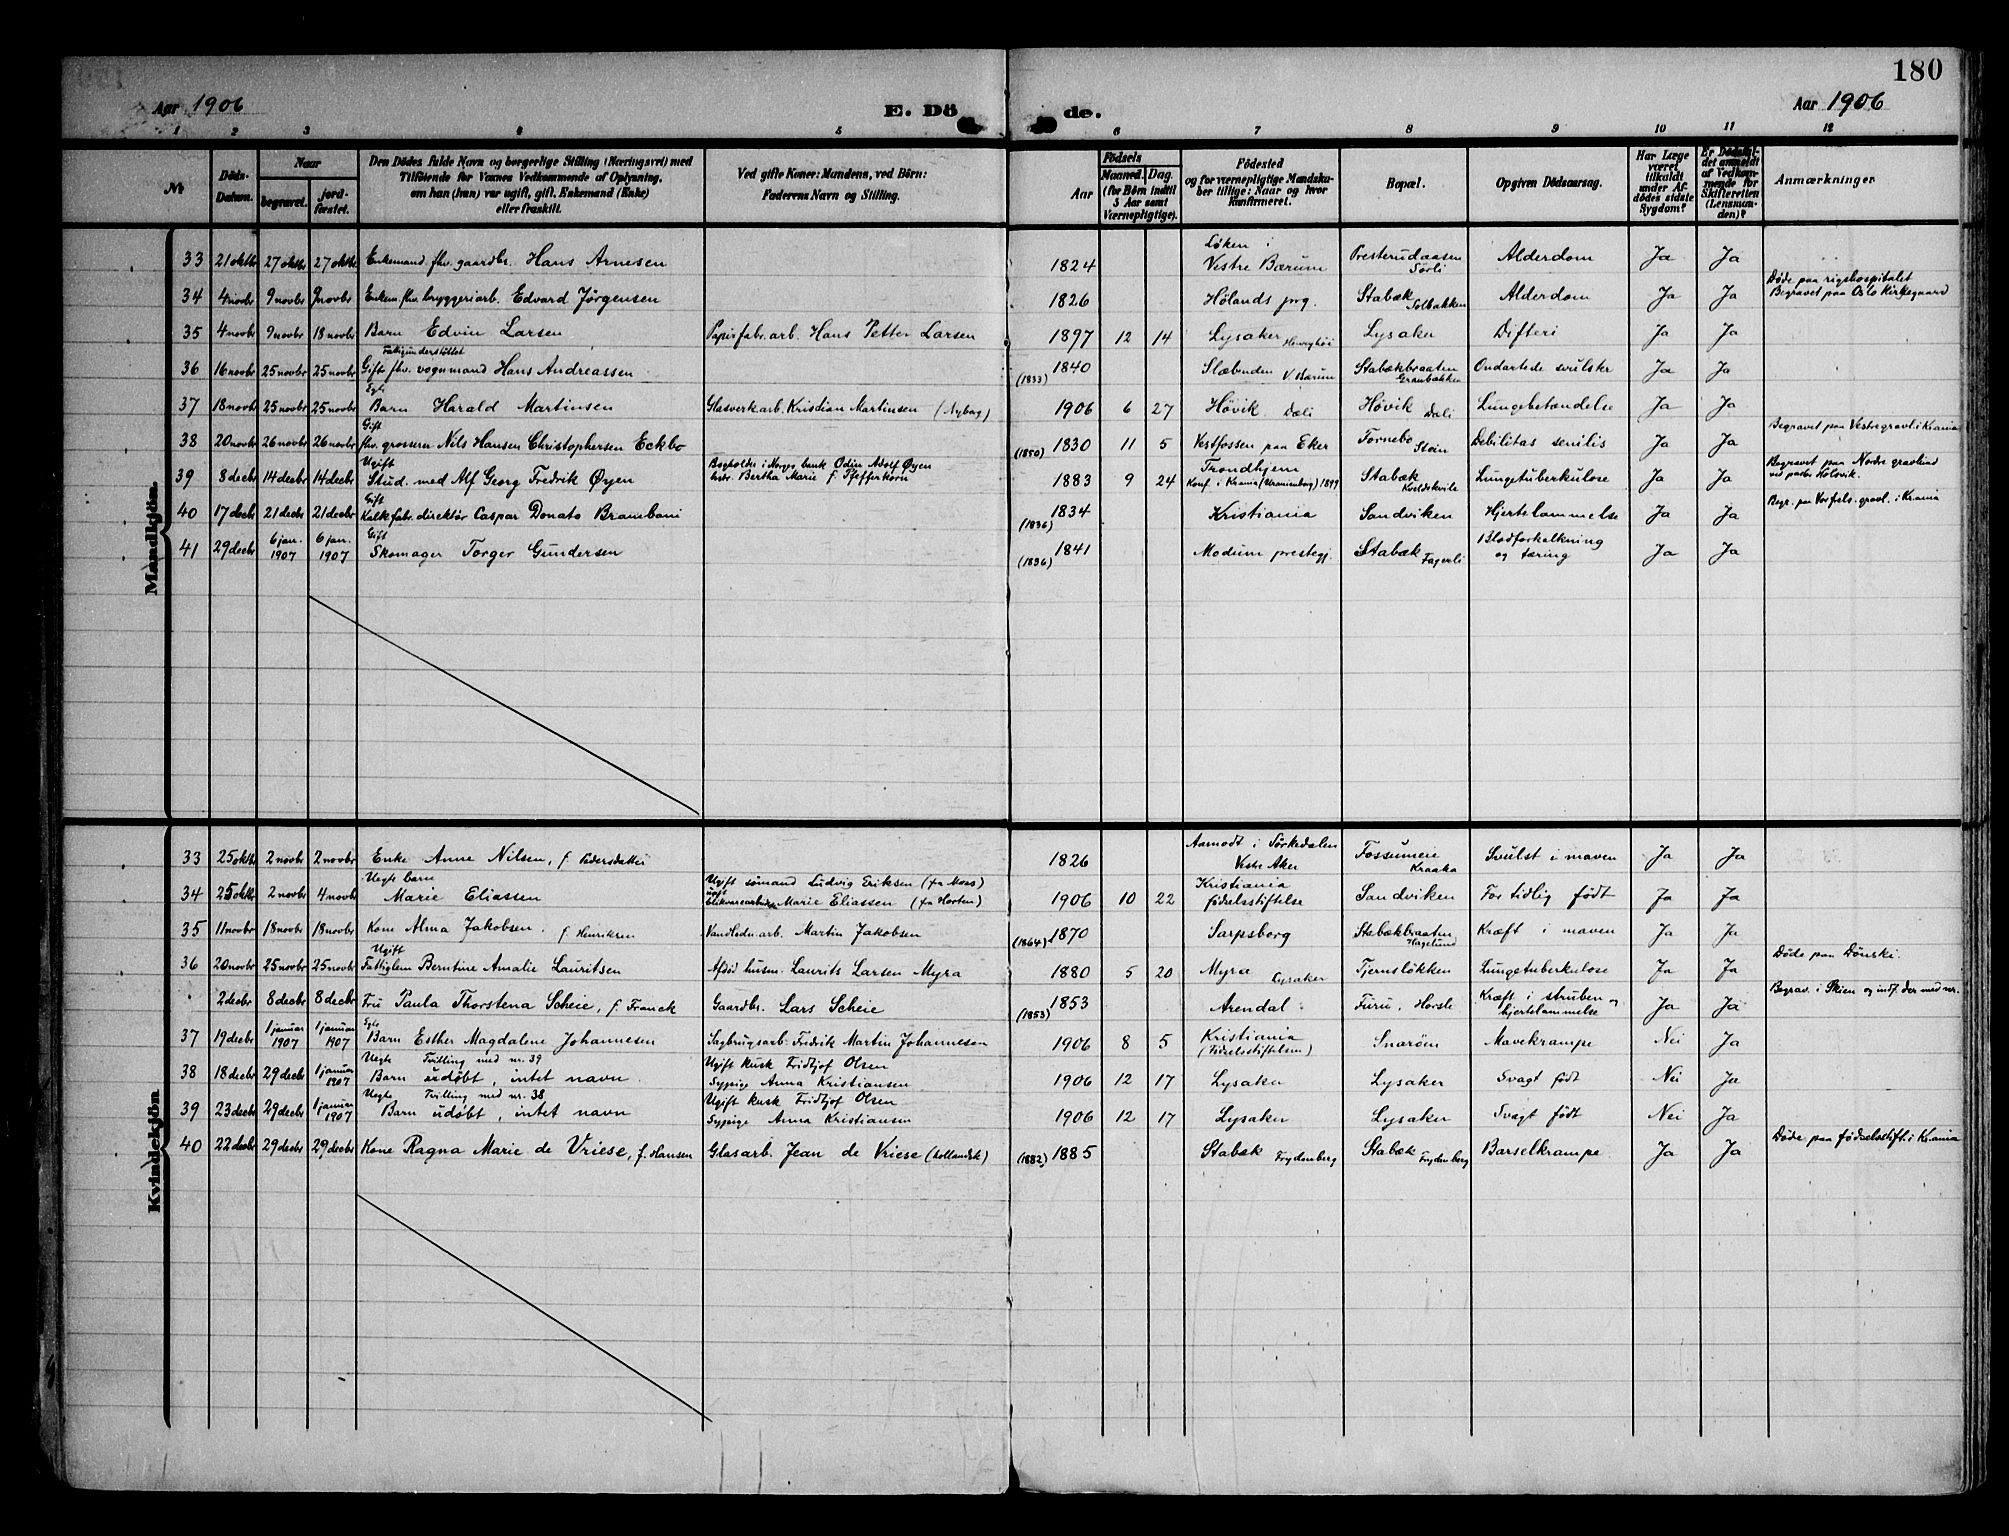 180
Aar 1906 E. Dö de. Aar 1906
1 2 3 4 5 6 7 8 9 10 11 12
№ Döds-Datum. Naar begravet. jord-fæstet. Den Dödes fulde Navn og borgerlige Stilling (Næringsvei) med Tilföiende for Voxnes Vedkommende af Oplysning, om han (hun) var ugift, gift, Enkemand (Enke) eller fraskilt. Ved gifte Koner: Mandens, ved Börn: Faderens Navn og Stilling. Aar Födsels Maaned. Dag. (for Börn indtil 5 Aar samt Værnepligtige). Födested og for værnepligtige Mandskaber tillige: Naar og hvor konfirmeret. Bopæl. Opgiven Dödsaarsag. Har Læge været tilkaldt under Afdödes sidste Sygdom? Er Dödsfaldet anmeldt af Vedkommende for Skifteretten (Lensmanden)? Anmærkninger
Mandkjön.
33 21 oktbr 27 oktbr 27 oktbr Enkemand fhv. gaardbr. Hans Arnesen 1824 Løken i Vestre Bærum Presterudaasen Sörli Alderdom Ja Ja
34 4 novbr 9 novbr 9 novbr Enkem. fhv. bryggeriarb. Edvard Jørgensen 1826 Hølands prg. Stabæk Solbakken Alderdom Ja Ja Døde paa rigshospitalet Begravet paa Oslo Kirkegaard
35 4 novbr 9 novbr 18 novbr Barn Edvin Larsen Papirfabr. arb. Hans Petter Larsen 1897 12 14 Lysaker Lysaker Difteri Ja Ja
36 16 novbr 25 novbr 25 novbr Fattigunderstøttet Gift fhv. vognmand Hans Andreassen (1833) 1840 Slæbenden V. Bærum Stabækbraaten Granbakken Ondartede svulster Ja Ja
37 18 novbr 25 novbr 25 novbr Egte Barn Harald Martinsen Glasverkarb. Kristian Martinsen (Nybog) 1906 6 27 Høvik Dæli Høvik Dæli Lungebetændelse Ja Ja
38 20 novbr 26 novbr 26 novbr Gift fhv. grosserer Nils Hansen Christophersen Eckbo (1850) 1830 11 5 Vestfossen paa Eker Fornebo Stein Debilitas senilis Ja Ja Begravet paa Vestregravl. i Krania
39 8 decbr 14 decbr 14 decbr Ugift Stud. med Alf Georg Fredrik Øyen Bogholder i Norges bank Odin Adolf Øyen Bertha Marie f. Pfefferkorn 1883 9 24 Trondhjem Konf. i Krania (Uranienborg) 1899 Stabæk Kveldshvile Lungetuberkulose Ja Ja Begravet paa Nordre gravlund ved pastor Holsvik.
40 17 decbr 21 decbr 21 decbr Gift Kalkfabr. direktør Caspar Donato Brambani (1836) 1834 Kristiania Sandviken Hjertelammelse Ja Ja Begr. paa Vor frels. gravl. i Krania
41 29 decbr 6 jan. 1907 6 jan. 1907 Gift Skomager Torger Gundersen (1896) 1841 Modum prestegj. Stabæk Fagerli Blodforkalkning og tæring Ja Ja
Kvindekjön
33 25 oktbr 2 novbr 2 novbr Enke Anne Nilsen, f. Pedersdatter 1826 Aamodt i Sørkedalen Vestre Aker Fossumeie Kraaka Svulst i maven Ja Ja
34 25 oktbr 2 novbr 4 novbr Uegte barn Marie Eliassen Ugift sømand Ludvig Eriksen (fra Moss) ugift Marie Eliassen (fra Horten) 1906 10 22 Kristiania fødselsstiftelse Sandviken For tidlig født Ja Ja
35 11 novbr 18 novbr 18 novbr Kone Alma Jakobsen. f. Henriksen Vandledn. arb. Martin Jakobsen (1864) 1870 Sarpsborg Stabækbraaten Hagelund Kræft i maven Ja Ja
36 20 novbr 25 novbr 25 novbr Ugift Fattiglem Berntine Amalie Lauritsen Afdød husm. Laurits Larsen Myra 1880 5 20 Myra Lysaker Tjernsløkken Lungetuberkulose Ja Ja Døde paa Dønski.
2 decbr 8 decbr 8 decbr Fru Paula Thorstena Scheie, f. Franck Gaardbr. Lars Scheie (1853) 1853 Arendal Furu, Horsle Kræft i struben og hjertelammelse Ja Ja Begrav. i Skien og indf. der med nr.
37 19 decbr 1 januar 1907 1 januar 1907 Egte Barn Esther Magdalene Johannesen Sagbrugsarb. Fredrik Martin Johannesen 1906 8 5 Kristiania (Fødselsstiftelsen) Snarøen Mavekrampe Nei Ja
38 18 decbr 29 decbr 1 januar 1907 Uegte Tvilling med nr. 39 Barn udøbt, intet navn. Ugift kusk Fridtjof Olsen Sypige Anna Kristiansen 1906 12 17 Lysaker Lysaker Svagt født Nei Ja
39 23 decbr 29 decbr 1 januar 1907 Uegte Tvilling med nr. 38 Barn udøbt, intet navn Ugift kusk Fridtjof Olsen Sypige Anna Kristiansen 1906 12 17 Lysaker Lysaker Svagt født Nei Ja
40 22 decbr 29 decbr 29 decbr Kone Ragna Marie de Vriese, f. Hansen Glasarb. Jean de Vriese (hollandsk) (1882) 1885 Stabæk Frydenberg Stabæk Frydenberg Barselkrampe Ja Ja Døde paa fødselsstift. i Krania